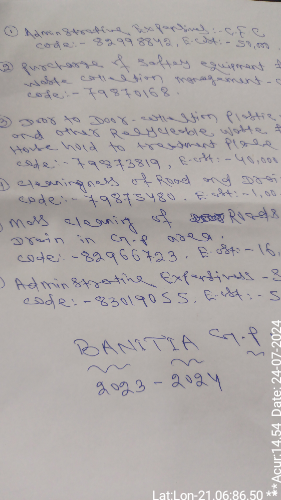 ① Administrative Expentives:- C.F.C
code:- 82998842, E.cost:- 39,00
② purchase of Safety equipment &
waste collection management - c
code:- 79870168.
③ Door to Door-collection Plastic
and other Recycleable waste f
House hold to treatment Place
code:- 79873819, E.cost:- 40,000
cleaningness of Road and Drain
code:- 79875480. E.cost:- 1,00
Mass cleaning of Roads
Drain in G.P area.
code:- 82966723. E.cost:- 16,
Administrative Expentives - S
code:- 83019055. E.cost:- 5
BANITIA G.P
2023 - 2024
Lat:Lon-21.06:86.50 **
**Acur:14.54 Date: 24-07-2024